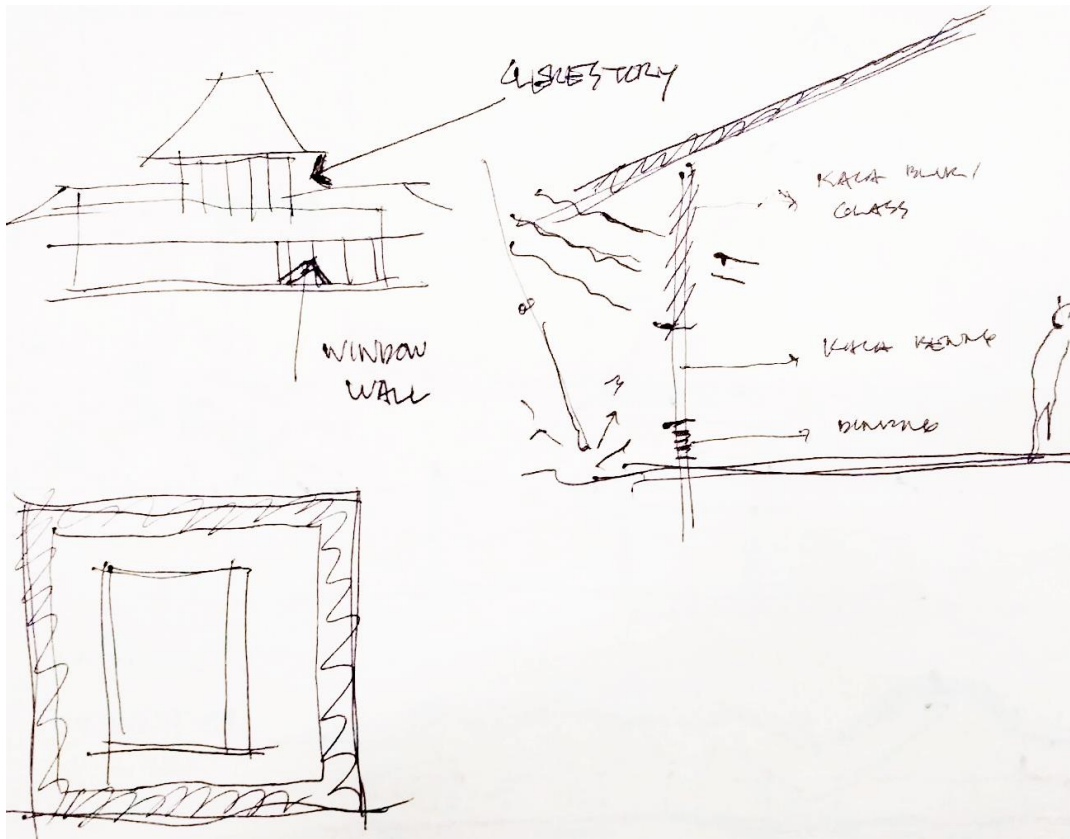 CLERESTORY
WINDOW
WALL
KACA BLUR /
GLASS
KACA BENING
DINDING